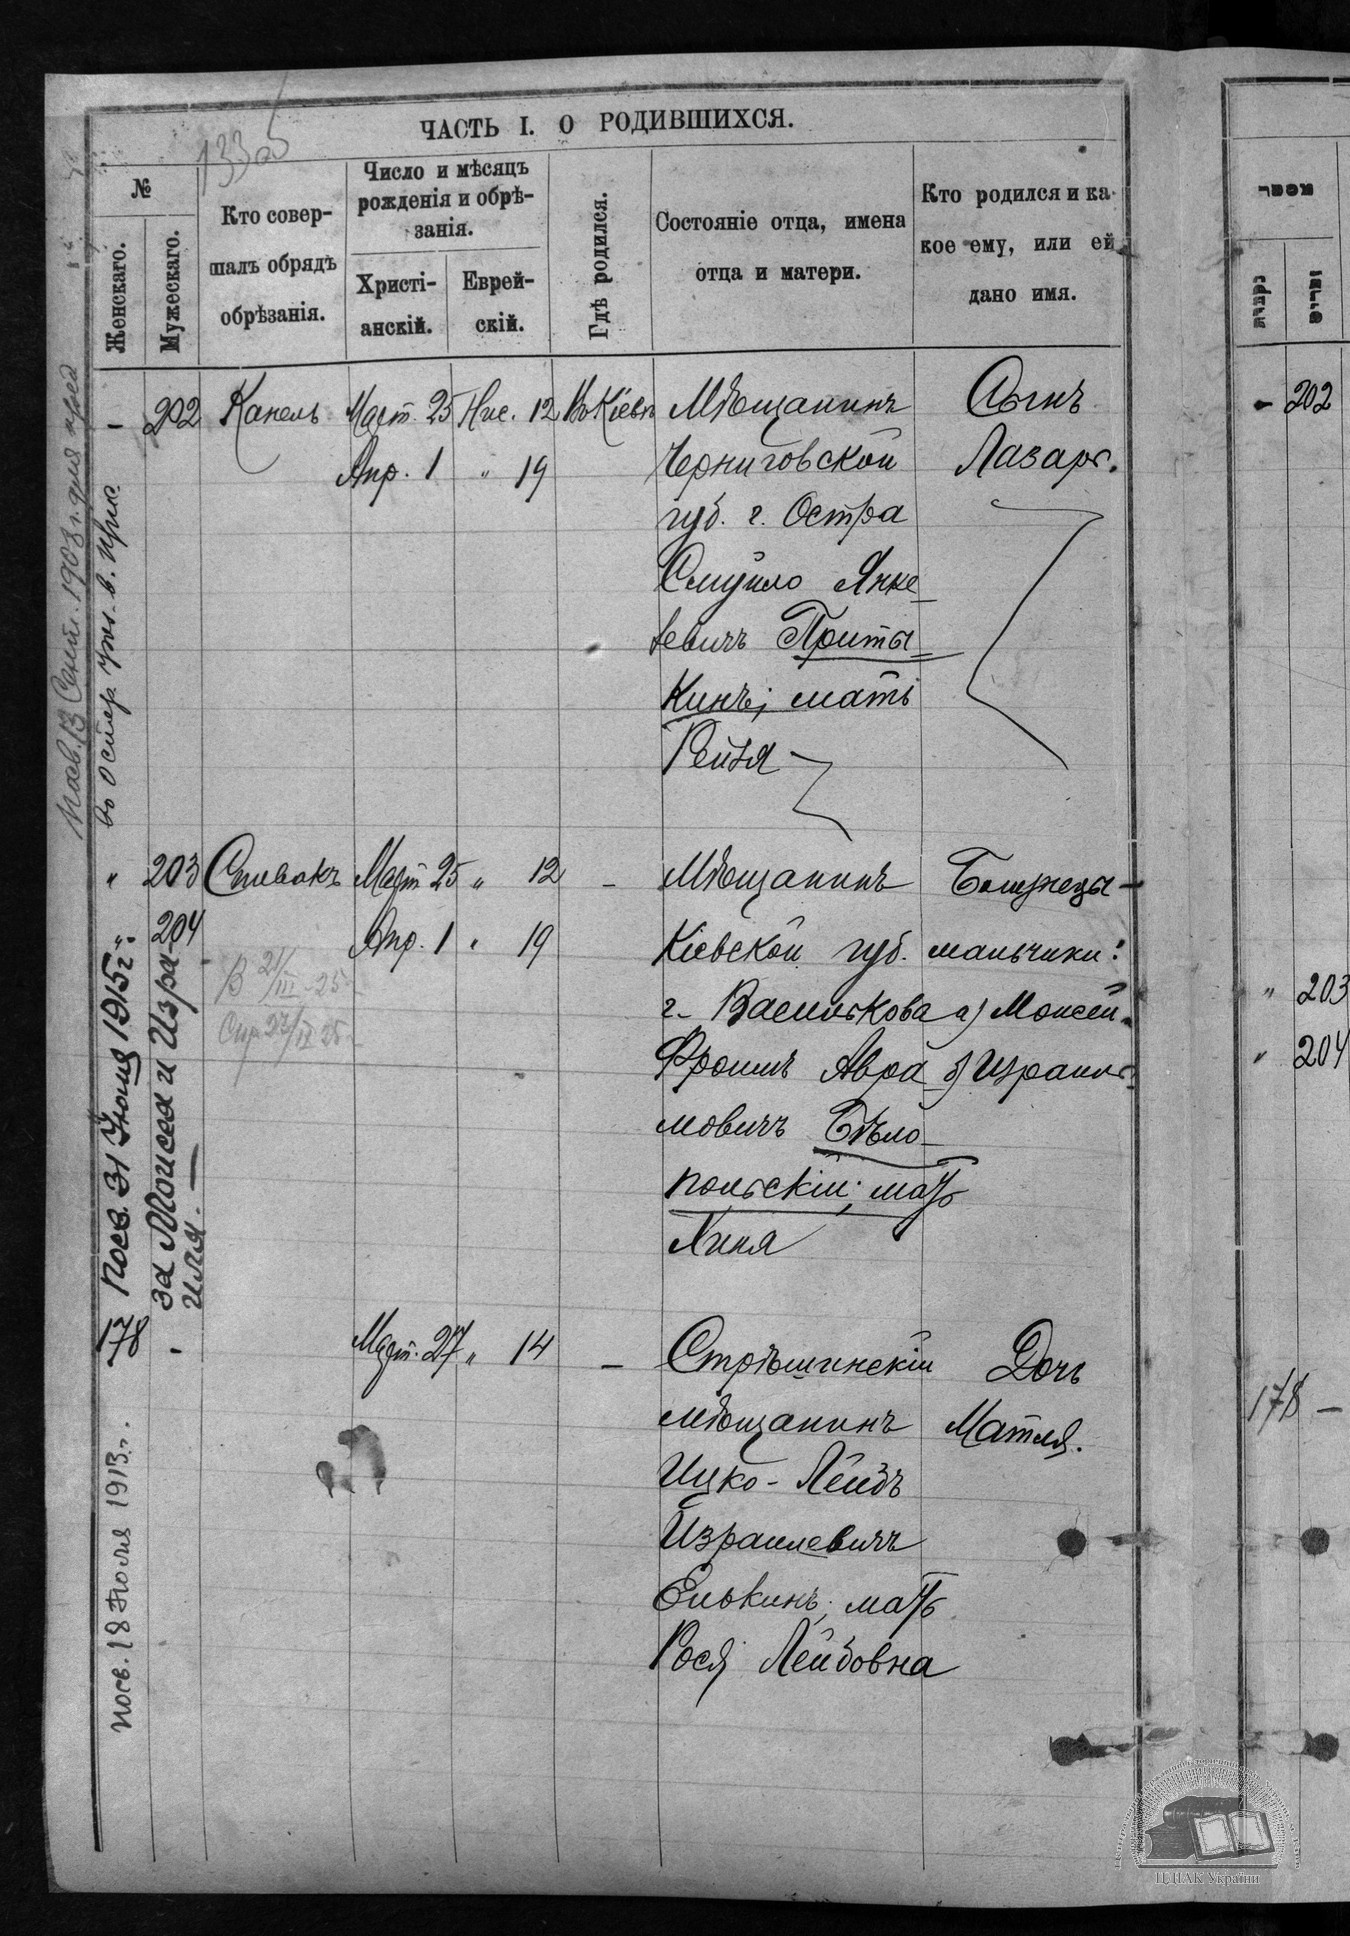 ЧАСТЬ I. О РОДИВШИХСЯ.
№
Женскаго.
Мужескаго.
Кто совер-
шалъ обрядъ
обрѣзанія.
Число и мѣсяцъ
рожденія и обрѣ-
занія.
Христі-
анскій.
Еврей-
скій.
Гдѣ родился.
Состояніе отца, имена
отца и матери.
Кто родился и ка-
кое ему, или ей
дано имя.
- 202 Канель Март. 25 Нис. 12 Въ Кіевѣ
Апр. 1 " 19
Мѣщанинъ
Черниговской
губ. г. Остра
Смуйло Янке-
левичъ Приты-
кинъ; мать
Рейзя
Сынъ
Лазарь.
" 203 Спивакъ Март 25 " 12 -
204 Апр. 1 " 19
Мѣщанинъ
Кіевской губ.
г. Василькова
Фроимъ Авра-
мовичъ Бѣло-
польскій; мать
Хиня
Близнецы -
мальчики:
а) Моисей
б) Израиль
178 - Март. 27 " 14 -
Стрѣшинскій
мѣщанинъ
Ицко-Лейбъ
Израилевичъ
Елькинъ; мать
Рося Лейбовна
Дочь
Матля.
1908 г. для пред
въ Остер. в. прис.
посв. 31 Іюля 1915 г.
за Моисея и Изра-
иля. -
посв. 18 Іюля 1913 г.
- 202
" 203
" 204
178 -
ЦДІАК України